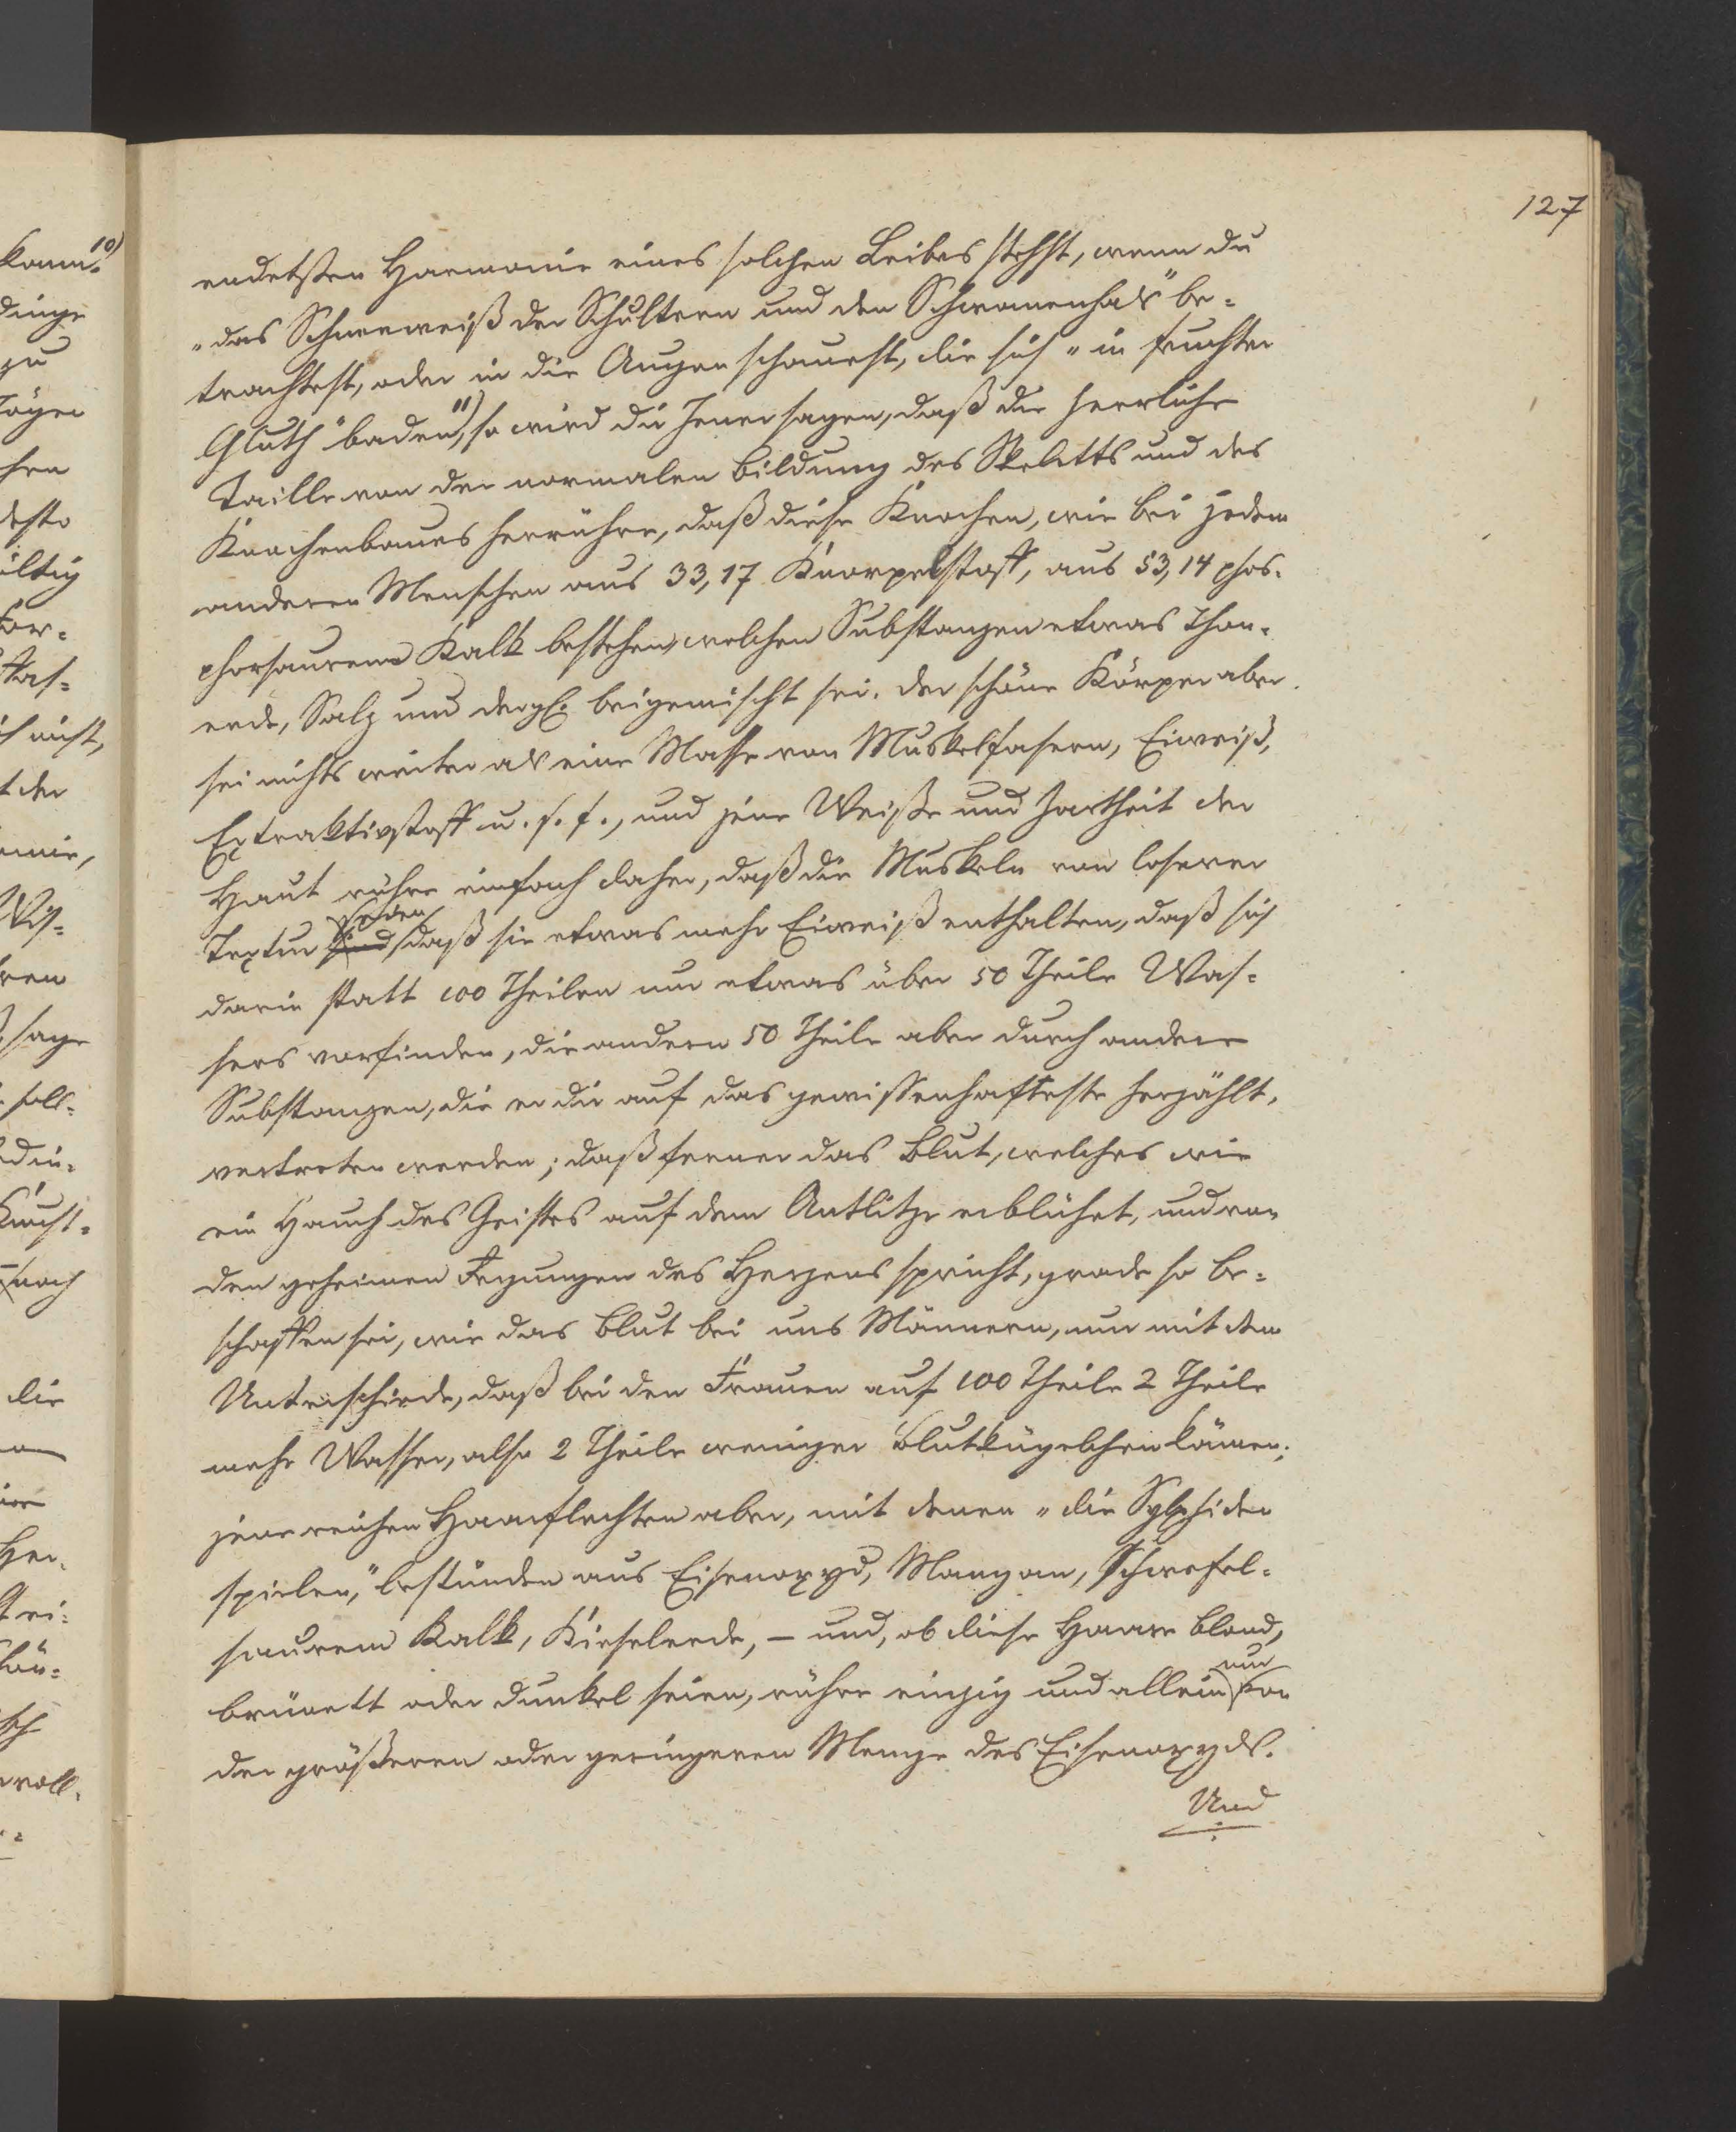 127
endetsten Harmonie eines solchen Leibes stehst, wenn du
„das Schneeweiß der Schultern und den Schwanenhals" be-
trachtest, oder in die Augen schauest, die sich „in feuchter
Gluth" baden, 11) so wird dir Jener sagen, daß die herrliche
Taille von der normalen Bildung des Skeletts und des
Knochenbaues herrühre, daß diese Knochen, wie bei jedem
anderen Menschen aus 33,17 Knorpelstoff, aus 53,14 phos-
phorsaurem Kalk bestehen, welchen Substanzen etwas Thon-
erde, Salz und dergl. beigemischt sei. Der schöne Körper aber
sei nichts weiter als eine Masse von Muskelfasern, Eiweiß,
Extraktivstoff u. s. f., und jene Weiße und Zartheit der
Haut rühre einfach daher, daß die Muskeln von loserer
Textur seien, daß sie etwas mehr Eiweiß enthalten, daß sich
darin statt 100 Theilen nur etwas über 50 Theile Was-
sers vorfinden, die andern 50 Theile aber durch andere
Substanzen, die er dir auf das gewissenhafteste herzählt,
vertreten werden; daß ferner das Blut, welches wie
ein Hauch des Geistes auf dem Antlitze erblühet, und von
den geheimen Regungen des Herzens spricht, grade so be-
schaffen sei, wie das Blut bei uns Männern, nur mit dem
Unterschiede, daß bei den Frauen auf 100 Theile 2 Theile
mehr Wasser, also 2 Theile weniger Blutkügelchen kämen;
jene reichen Haarflechten aber, mit denen „die Sylphiden
spielen," bestünden aus Eisenoxyd, Mangan, schwefel-
saurem Kalk, Kieselerde, – und, ob diese Haare blond,
brünett oder dunkel seien, rühre einzig und allein nur von
der größeren oder geringeren Menge des Eisenoxyds.
Und